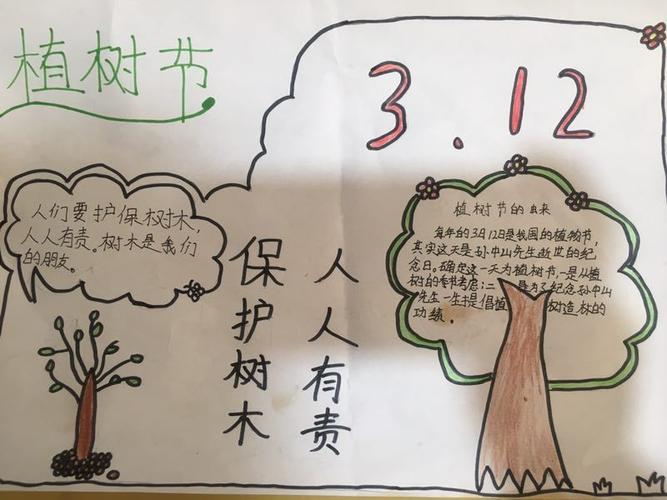 植树节
3.12
人们要护保树木,
人人有责。树木是我们
的朋友。
保护树木
人人有责
植树节的由来
每年的3月12日是我国的植物节,
其实这天是孙中山先生逝世的纪
念日。确定这一天为植树节,一是从植
树的季节考虑:二 是为了纪念孙中山
先生一生提倡植 树造林的
功绩。